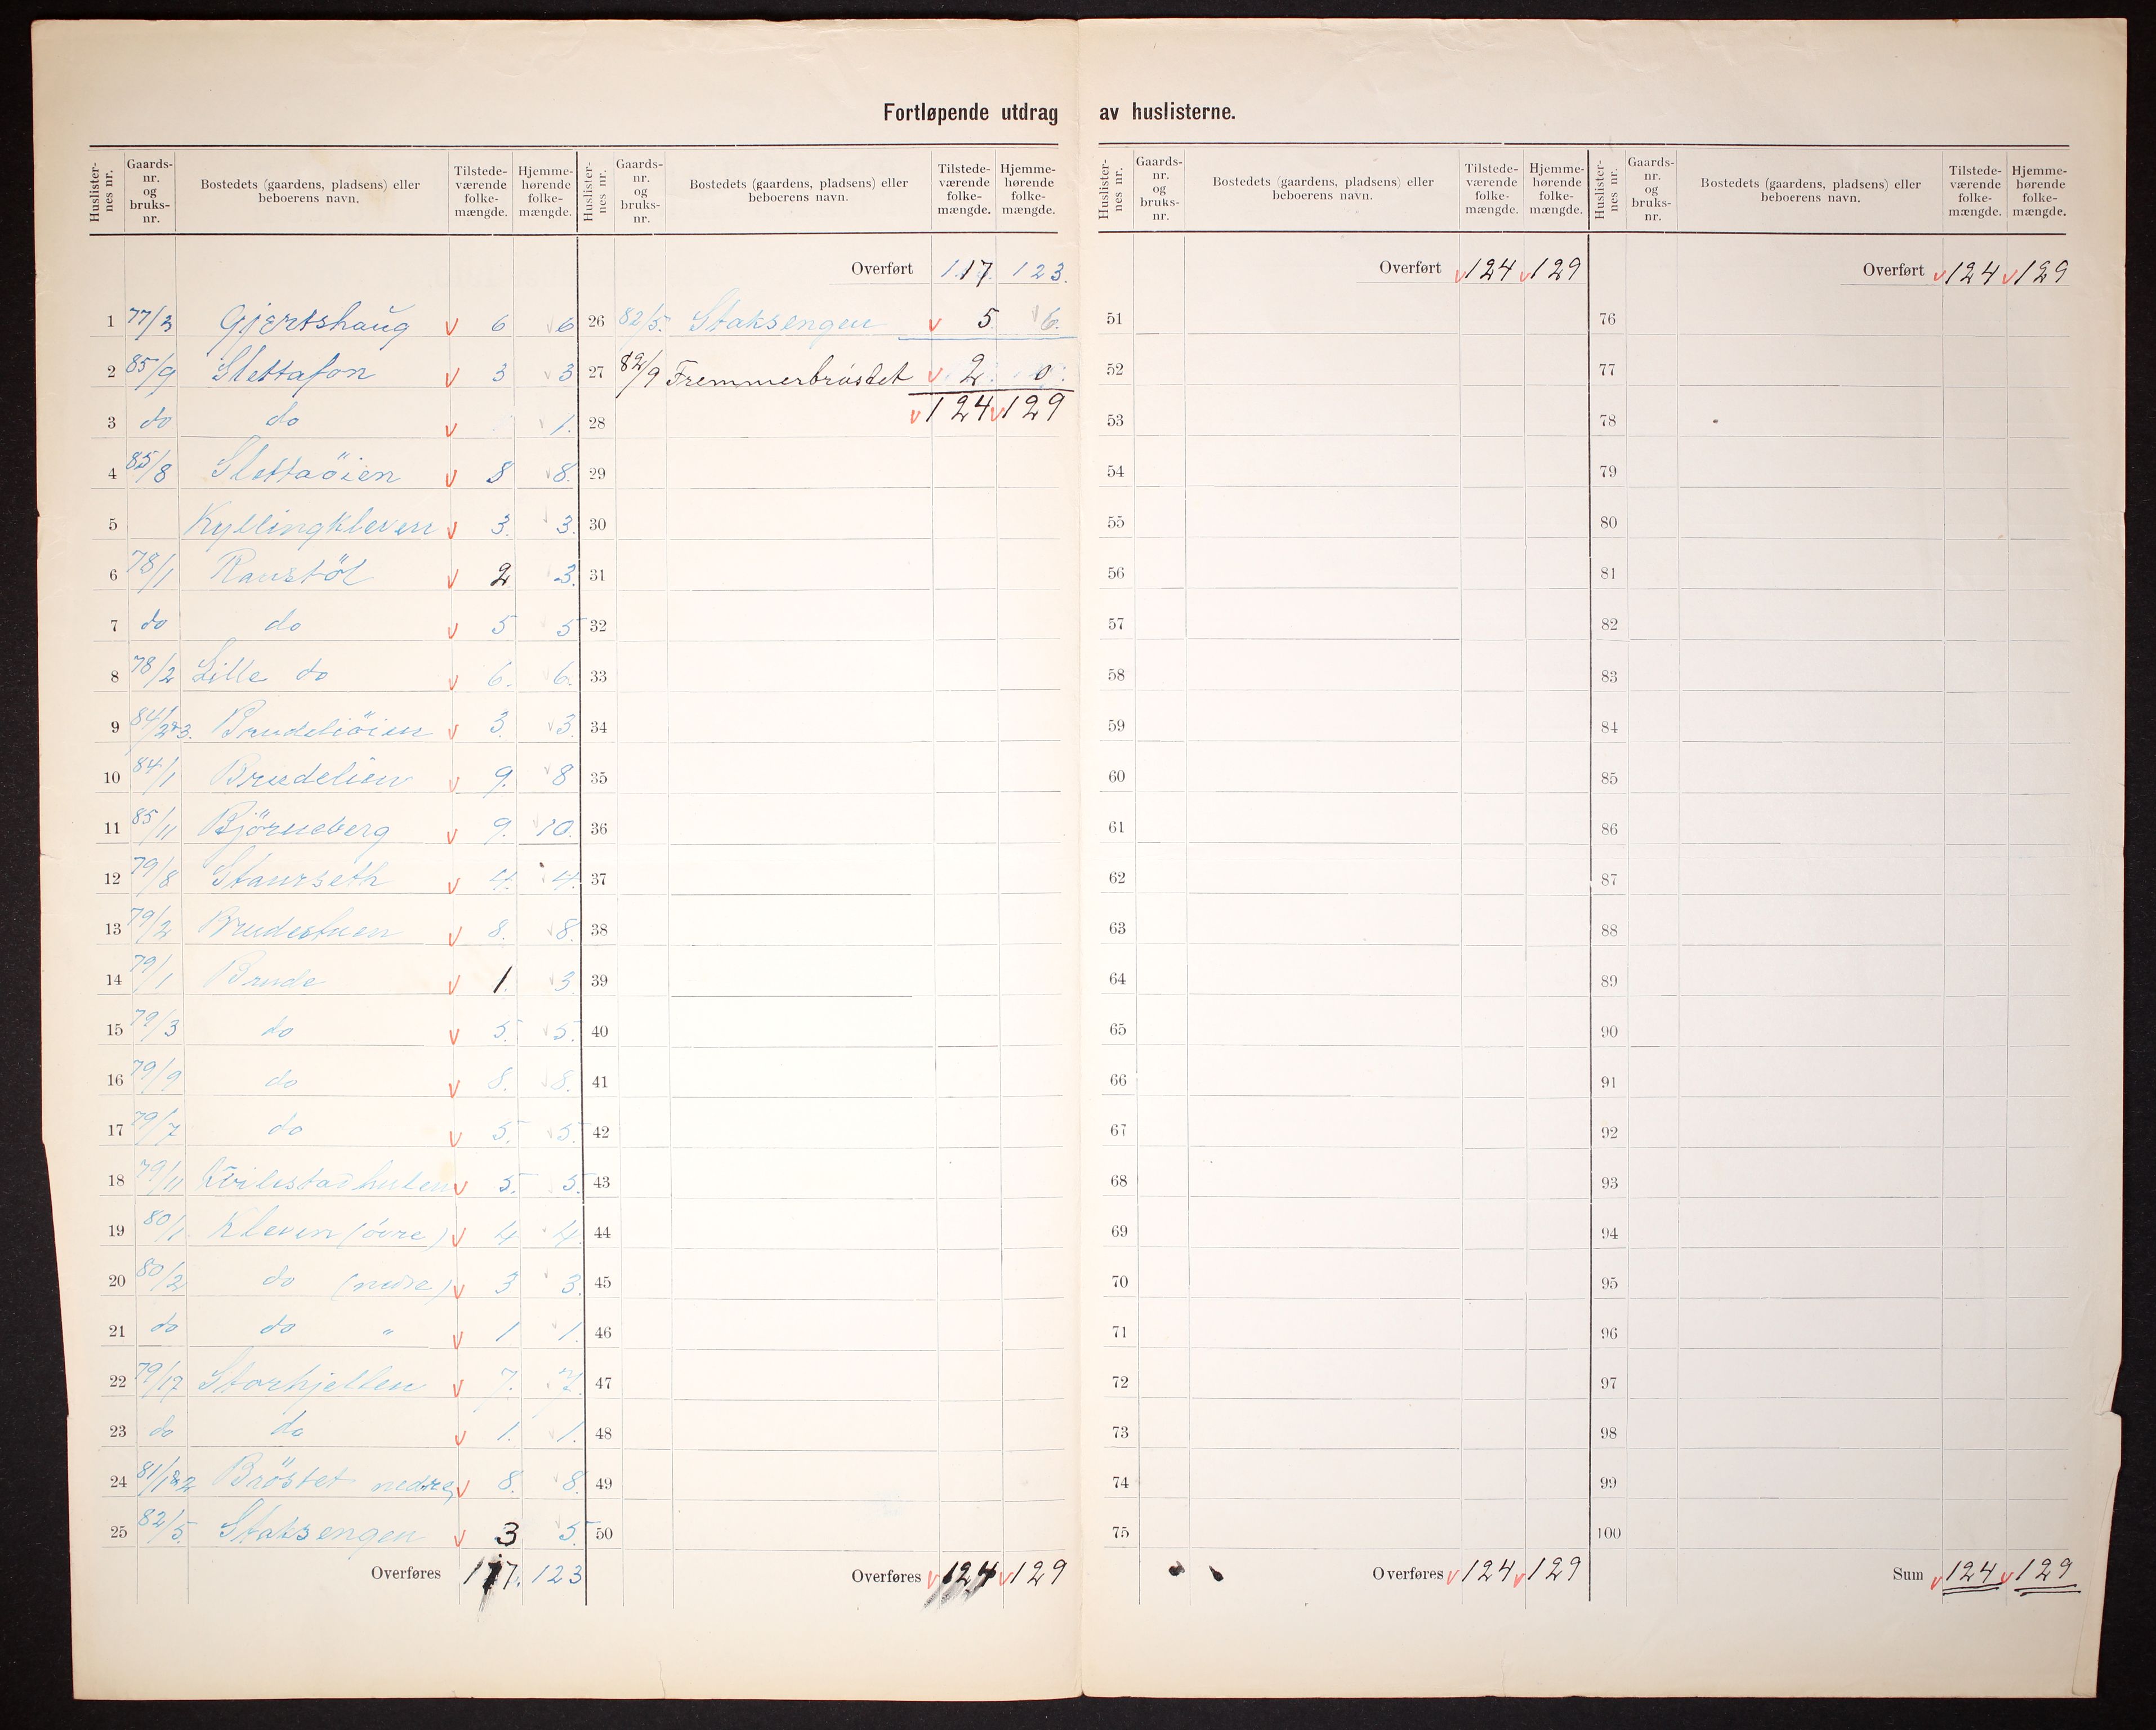 Fortløpende utdrag av huslisterne.
Huslisternes nr. | Gaardsnr. og bruksnr. | Bostedets (gaardens, pladsens) eller beboerens navn. | Tilstedeværende folkemængde. | Hjemmehørende folkemængde.
1 77/3 Gjertshaug v 6 v 6
2 85/9 Slettafon v 3 v 3
3 do do v v 1.
4 85/8 Slettaöien v 8 v 8.
5 Kyllingkleven v 3. v 3.
6 78/1 Raustöl v 2 3.
7 do do v 5 5
8 78/2 Lille do v 6. v 6.
9 84/2&3. Brudeliöien v 3. v 3.
10 84/1 Brudelien v 9. v 8
11 85/11 Björneberg v 9. v 10.
12 79/8 Staurseth v 4. 4.
13 79/2 Brudestuen v 8. v 8.
14 79/1 Brude v 1. v 3.
15 79/3 do v 5. v 5.
16 79/9 do v 8. v 8.
17 79/7 do v 5. v 5.
18 79/11 v 5. 5.
19 80/1 Kleven (övre) v 4 4.
20 80/2 do (nedre) v 3 3.
21 do do " v 1 1.
22 79/17 Storhjellen v 7. 7.
23 do do v 1. v 1.
24 81/1&2 Bröstet nedre, v 8. v 8.
25 82/5. Staksengen v 3 v 5
Overføres 117. 123
Huslisternes nr. | Gaardsnr. og bruksnr. | Bostedets (gaardens, pladsens) eller beboerens navn. | Tilstedeværende folkemængde. | Hjemmehørende folkemængde.
Overført 117. 123.
26 82/5. Staksengen v 5. v 6.
27 82/9 Fremmerbrøstet v 2 0
28 v 124 v 129
29
30
31
32
33
34
35
36
37
38
39
40
41
42
43
44
45
46
47
48
49
50
Overføres v 124 v 129
Huslisternes nr. | Gaardsnr. og bruksnr. | Bostedets (gaardens, pladsens) eller beboerens navn. | Tilstedeværende folkemængde. | Hjemmehørende folkemængde.
Overført v 124 v 129
51
52
53
54
55
56
57
58
59
60
61
62
63
64
65
66
67
68
69
70
71
72
73
74
75
Overføres v 124 v 129
Huslisternes nr. | Gaardsnr. og bruksnr. | Bostedets (gaardens, pladsens) eller beboerens navn. | Tilstedeværende folkemængde. | Hjemmehørende folkemængde.
Overført v 124 v 129
76
77
78
79
80
81
82
83
84
85
86
87
88
89
90
91
92
93
94
95
96
97
98
99
100
Sum v 124 v 129